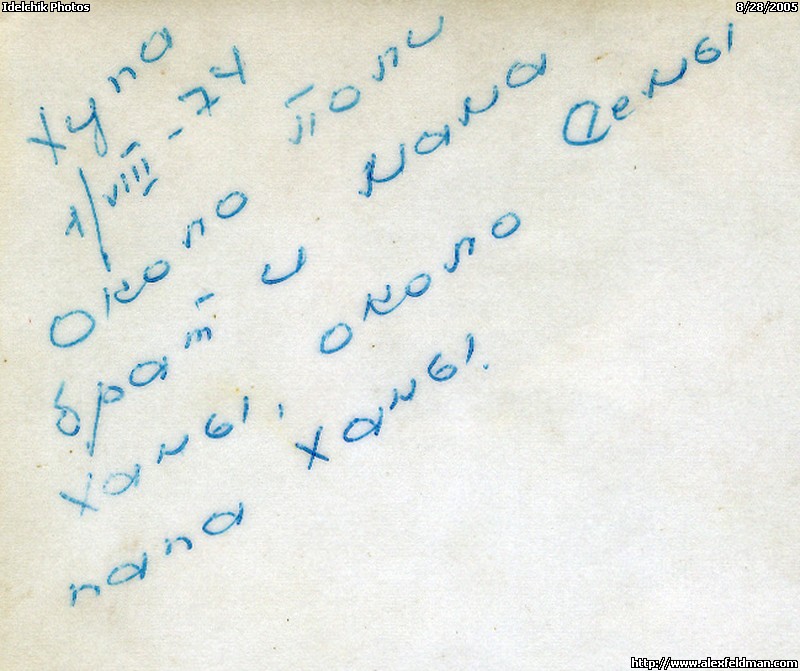 Хупа
1/VIII-74
Около Поли
брат и мама
Ханы, около
папа Ханы.
Idelchik Photos
8/28/2005
http://www.alexfeldman.com